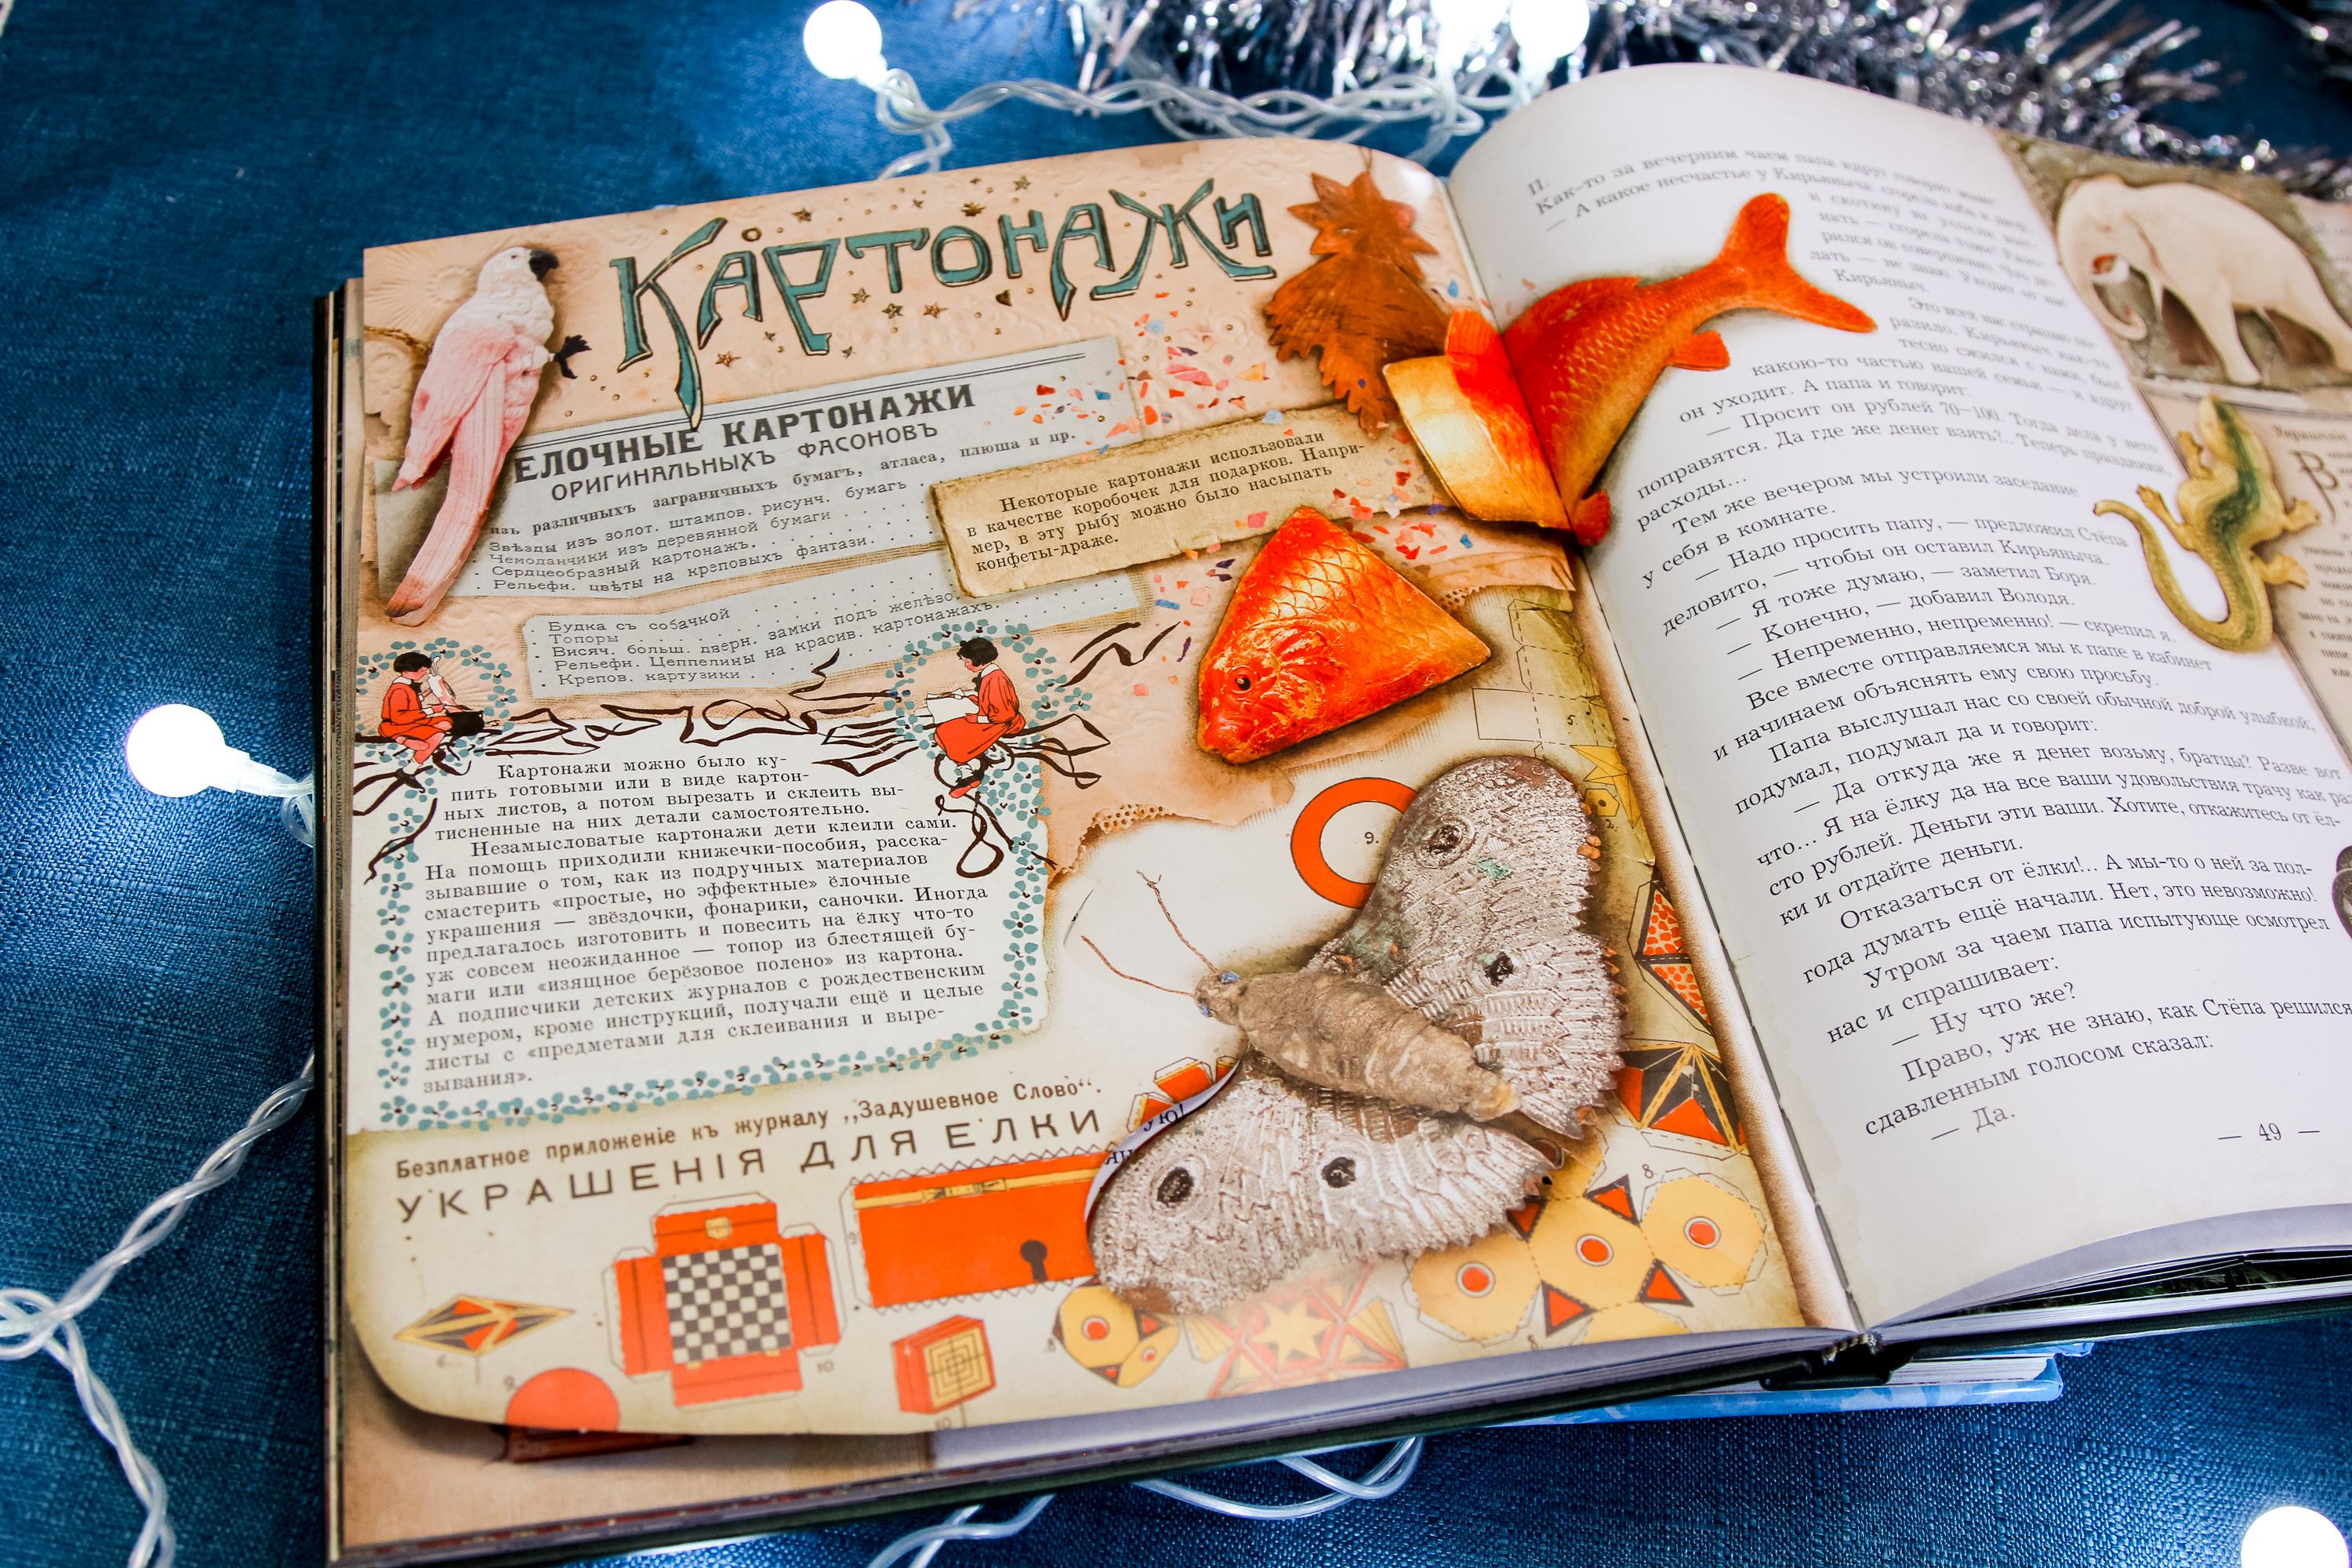 Картонажи
ЕЛОЧНЫЕ КАРТОНАЖИ
ОРИГИНАЛЬНЫХЪ ФАСОНОВЪ
изъ различныхъ заграничныхъ бумагъ, атласа, плюша и пр.
Звѣзды изъ золот. штампов. рисунч. бумагъ
Чемоданчики изъ деревянной бумаги
Сердцеобразный картонажъ.
Рельефн. цвѣты на креповыхъ фантази.
Будка съ собачкой
Топоры
Висяч. больш. дверн. замки подъ желѣзо.
Рельефн. Цеппелины на красив. картонажахъ.
Крепов. картузики
Некоторые картонажи использовали
в качестве коробочек для подарков. Напри-
мер, в эту рыбу можно было насыпать
конфеты-драже.
Картонажи можно было ку-
пить готовыми или в виде картон-
ных листов, а потом вырезать и склеить вы-
тисненные на них детали самостоятельно.
Незамысловатые картонажи дети клеили сами.
На помощь приходили книжечки-пособия, расска-
зывавшие о том, как из подручных материалов
смастерить «простые, но эффектные» ёлочные
украшения — звёздочки, фонарики, саночки. Иногда
предлагалось изготовить и повесить на ёлку что-то
уж совсем неожиданное — топор из блестящей бу-
маги или «изящное берёзовое полено» из картона.
А подписчики детских журналов с рождественским
нумером, кроме инструкций, получали ещё и целые
листы с «предметами для склеивания и выре-
зывания».
Безплатное приложеніе къ журналу „Задушевное Слово“.
УКРАШЕНІЯ ДЛЯ ЕЛКИ
ую!
9.
5
2.
8.
6
9
10
10
II.
Как-то за вечерним чаем папа вдруг говорит маме:
— А какое несчастье у Кирьяныча: сгорела изба и двор,
и скотину не успели выг-
нать — сгорела тоже!
рился он совершенно. Что де-
лать — не знаю. Уходит от нас
Кирьяныч.
Это всех нас страшно по-
разило. Кирьяныч как-то
тесно сжился с нами, был
какою-то частью нашей семьи — и вдруг
он уходит. А папа и говорит:
— Просит он рублей 70–100. Тогда дела у него
поправятся. Да где же денег взять?.. Теперь праздники,
расходы...
Тем же вечером мы устроили заседание
у себя в комнате.
— Надо просить папу, — предложил Стёпа
деловито, — чтобы он оставил Кирьяныча.
— Я тоже думаю, — заметил Боря.
— Конечно, — добавил Володя.
— Непременно, непременно! — скрепил я.
Все вместе отправляемся мы к папе в кабинет
и начинаем объяснять ему свою просьбу.
Папа выслушал нас со своей обычной доброй улыбкой,
подумал, подумал да и говорит:
— Да откуда же я денег возьму, братцы? Разве вот
что... Я на ёлку да на все ваши удовольствия трачу как раз
сто рублей. Деньги эти ваши. Хотите, откажитесь от ёл-
ки и отдайте деньги.
Отказаться от ёлки!.. А мы-то о ней за пол-
года думать ещё начали. Нет, это невозможно!
Утром за чаем папа испытующе осмотрел
нас и спрашивает:
— Ну что же?
Право, уж не знаю, как Стёпа решился
сдавленным голосом сказал:
— Да.
— 49 —